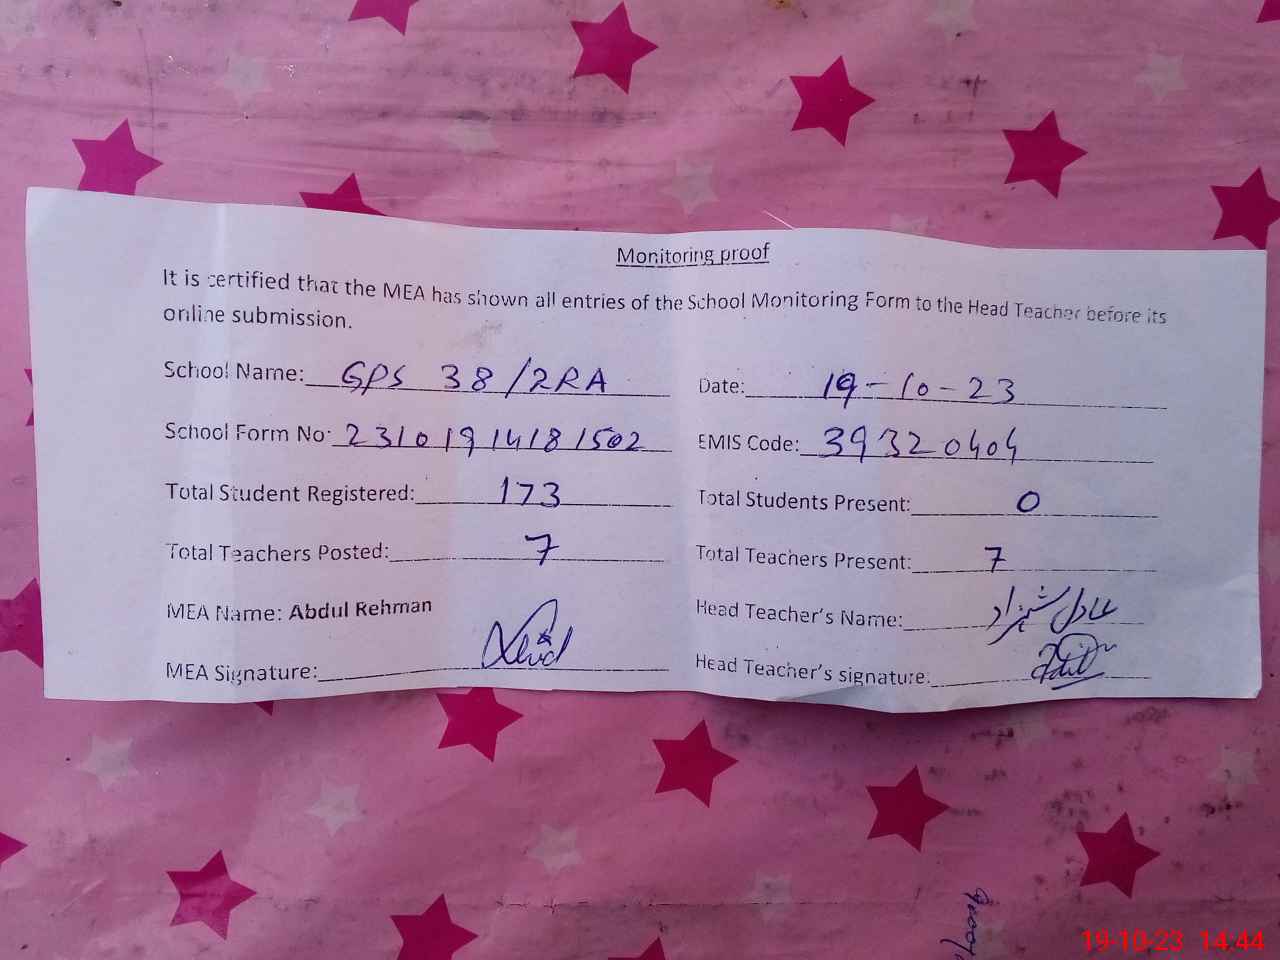 Monitoring proof
It is certified that the MEA has shown all entries of the School Monitoring Form to the Head Teacher before its
online submission.
School Name: GPS 38/2RA Date: 19-10-23
School Form No: 23101914181502 EMIS Code: 39320404
Total Student Registered: 173 Total Students Present: 0
Total Teachers Posted: 7 Total Teachers Present: 7
MEA Name: Abdul Rehman Head Teacher's Name: عادل شہزاد
MEA Signature: Head Teacher's signature:
19-10-23 14:44